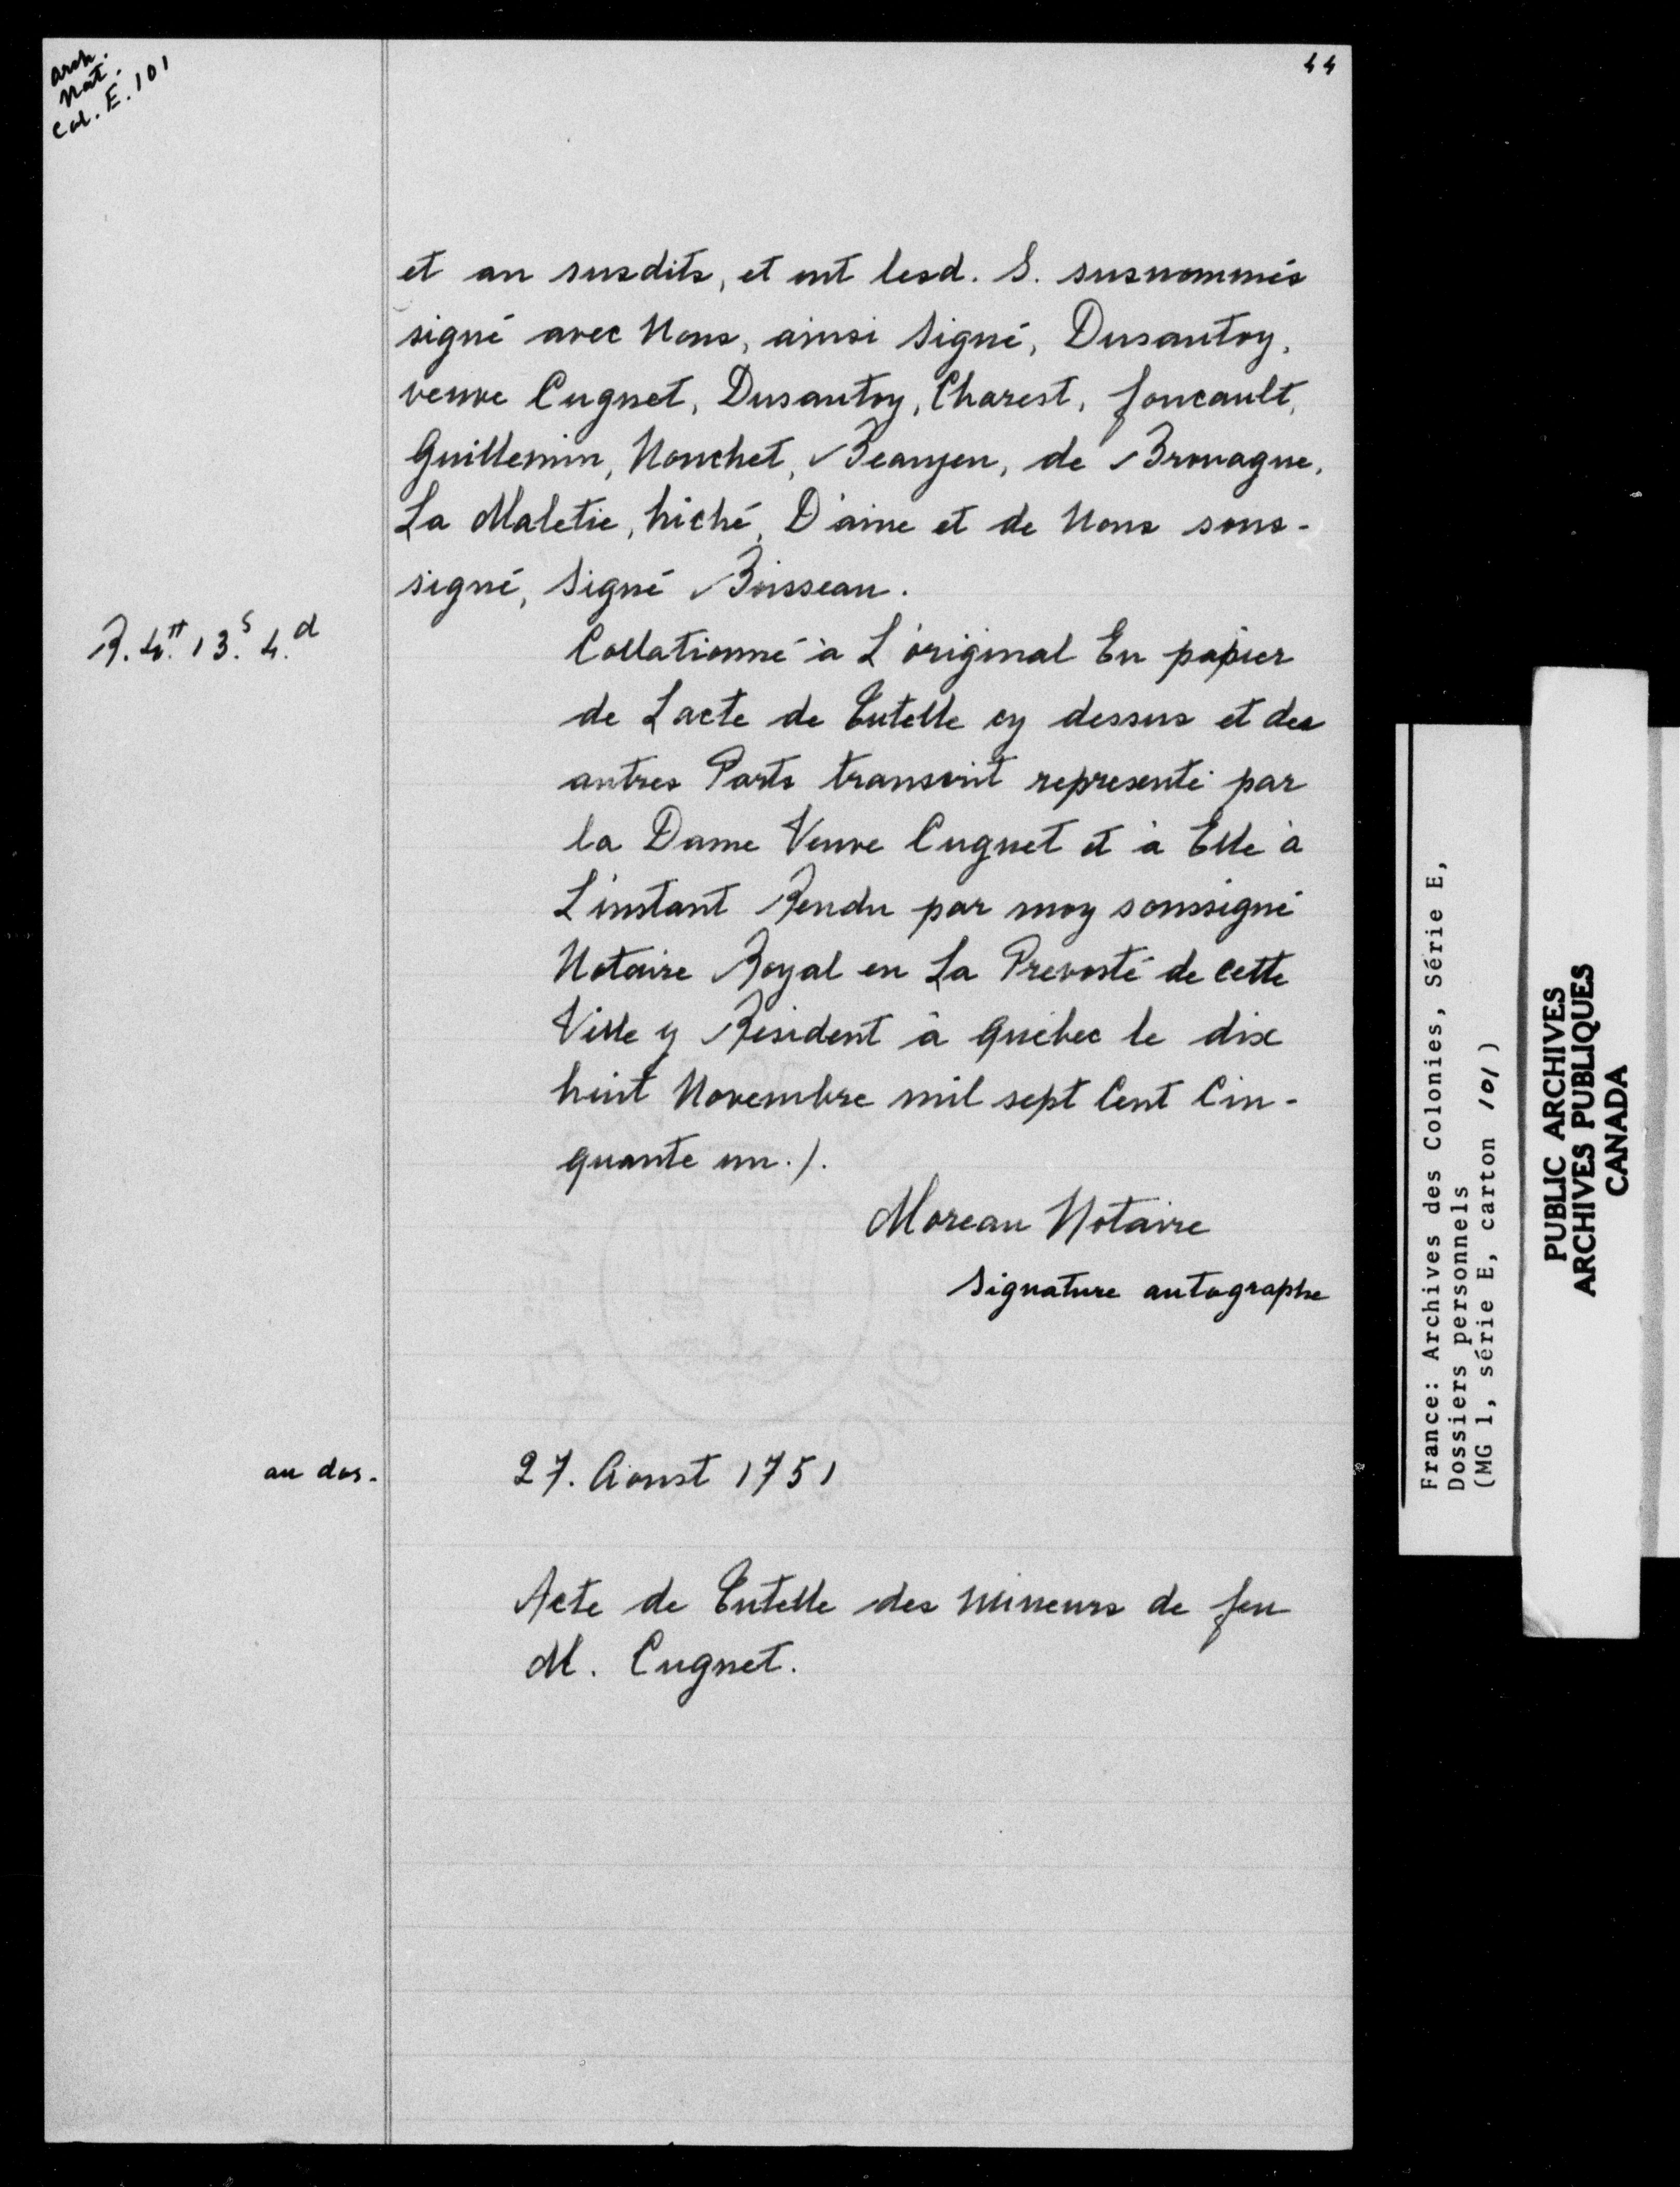 arch.
nat.
Col. E. 101
44
et an susdits, et ont lesd. S. susnommés
signé avec Nous, ainsi Signé, Dusautoy,
veuve Cugnet, Dusautoy, Charest, foucault,
Guillemin, Nouchet, Beaujeu, de Brouague,
La Maletie, hiché, D'aine et de Nous sous-
signé, Signé Boisseau.
R. 4.tt 13.s 4.d
Collationné à L'original En papier
de Lacte de Tutelle cy dessus et des
autres Parts transcrit representé par
la Dame Veuve Cugnet et à Elle à
L'instant Rendu par moy soussigné
Notaire Royal en La Prevosté de cette
Ville y Résident à Québec le dix
huit Novembre mil sept Cent Cin-
quante un./.
Moreau Notaire
Signature autographe
au dos.
27. Aoust 1751
Acte de Tutelle des Mineurs de feu
M. Cugnet.
France: Archives des Colonies, Série E,
Dossiers personnels
(MG 1, série E, carton 101)
PUBLIC ARCHIVES
ARCHIVES PUBLIQUES
CANADA